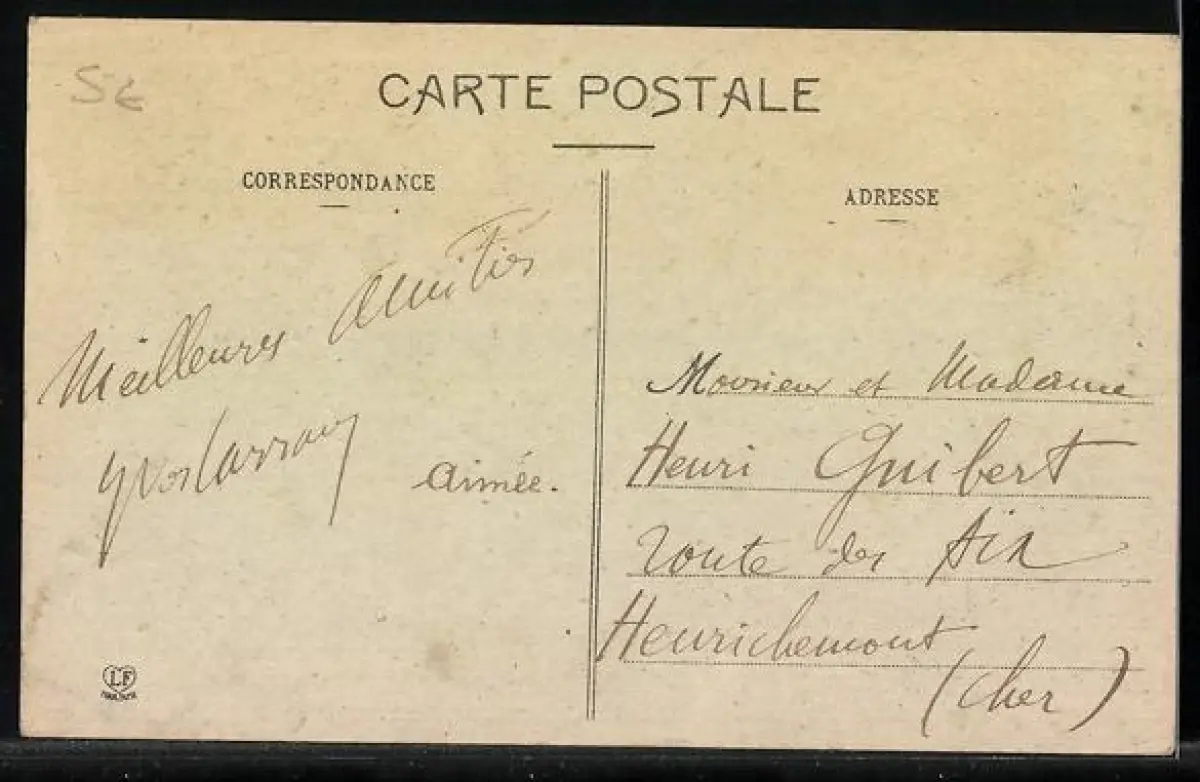 5€
CARTE POSTALE
CORRESPONDANCE
Meilleures Amitiés
aimée.
LF
ADRESSE
Monsieur et Madame
Henri Guibert
route des Aix
Henrichemont
(Cher)